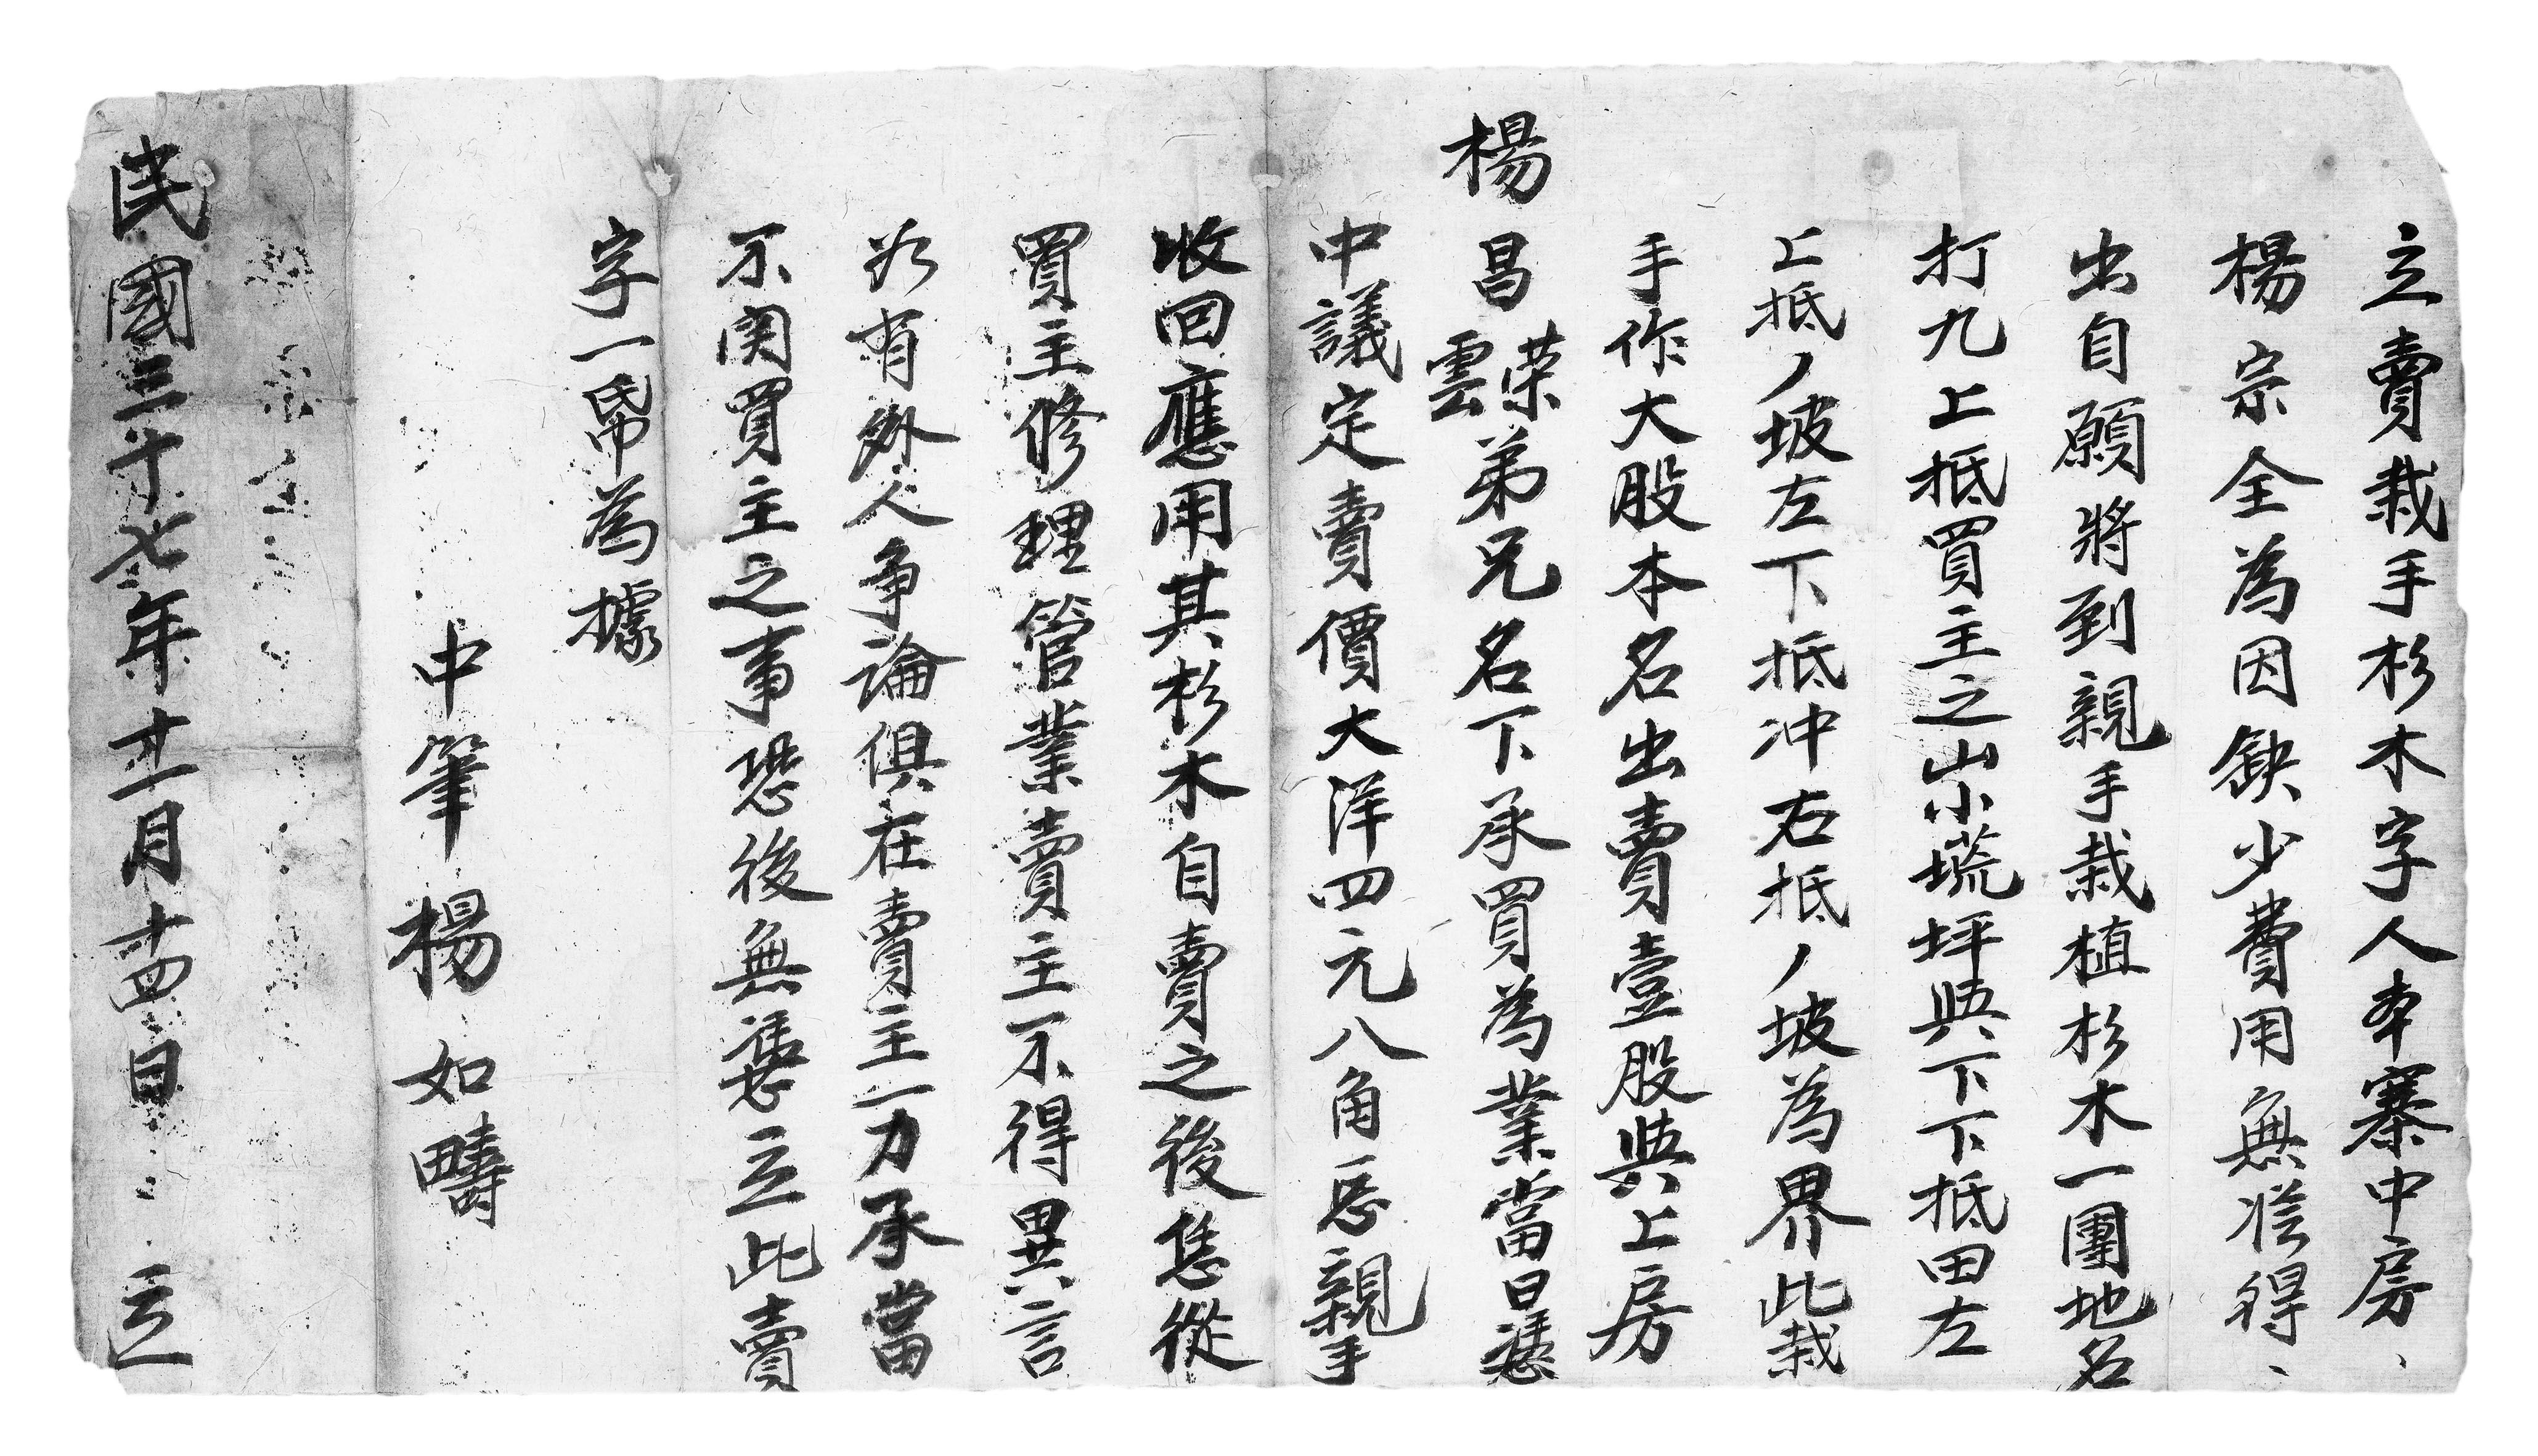 立賣栽手杉木字人本寨中房、
楊宗全為因缺少費用無從得、
出自願將到親手栽植杉木一團地名
打九上抵買主之山小塃坪與下下抵田左
上抵ノ坡左下抵冲右抵ノ坡為界此栽
手作大股本名出賣壹股與上房
楊昌榮雲弟兄名下承買為業當日憑
中議定賣價大洋四元八角正親手
收回應用其杉木自賣之後恁從
買主修理管業賣主不得異言
若有外人爭論俱在賣主一力承當
不関買主之事恐後無憑立此賣
字一帋為據
中筆楊如疇
民國三十七年十二月十四日立